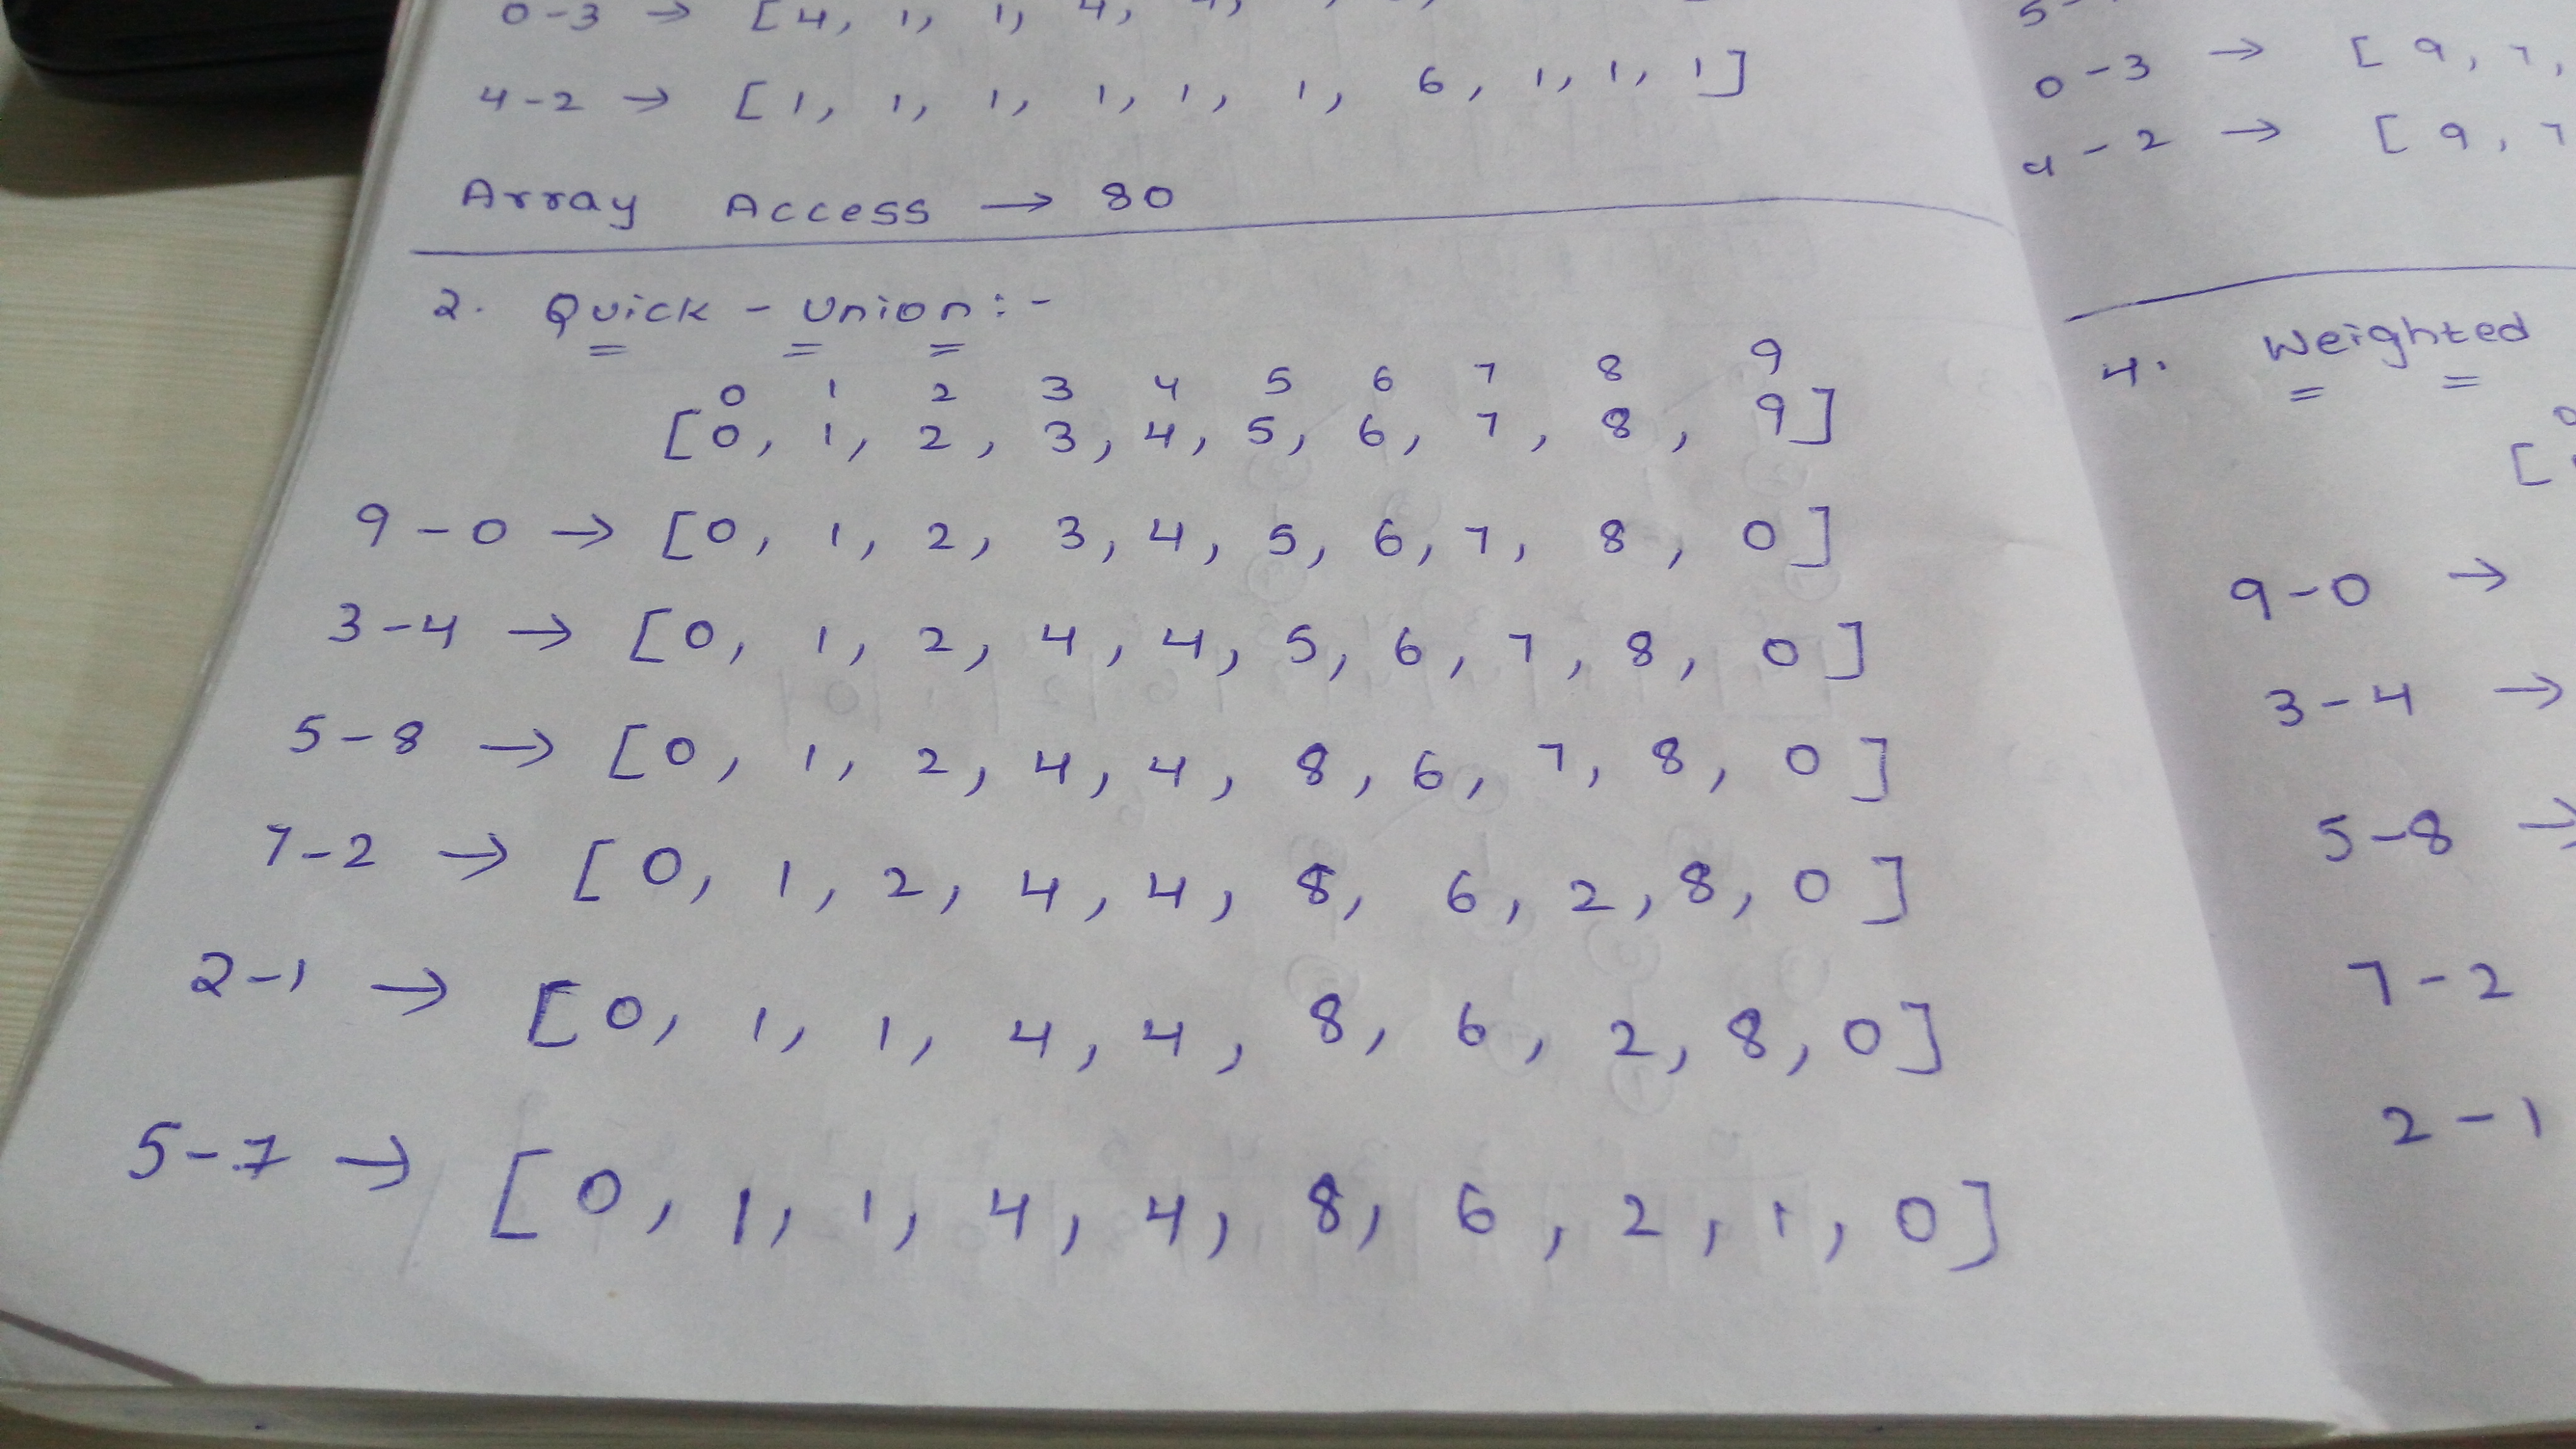 0-3 → [4, 1, 1, 4, 4,
4-2 → [1, 1, 1, 1, 1, 1, 6, 1, 1, 1]
Array Access → 80
2. Quick - Union:-
0 1 2 3 4 5 6 7 8 9
[0, 1, 2, 3, 4, 5, 6, 7, 8, 9]
9-0 → [0, 1, 2, 3, 4, 5, 6, 7, 8, 0]
3-4 → [0, 1, 2, 4, 4, 5, 6, 7, 8, 0]
5-8 → [0, 1, 2, 4, 4, 8, 6, 7, 8, 0]
7-2 → [0, 1, 2, 4, 4, 8, 6, 2, 8, 0]
2-1 → [0, 1, 1, 4, 4, 8, 6, 2, 8, 0]
5-7 → [0, 1, 1, 4, 4, 8, 6, 2, 1, 0]
5-
0-3 → [9, 7,
4-2 → [9, 7
4. Weighted
[
9-0 →
3-4 →
5-8 →
7-2
2-1